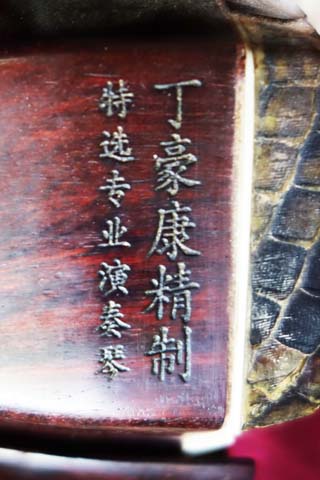 丁豪康精制
特选专业演奏琴